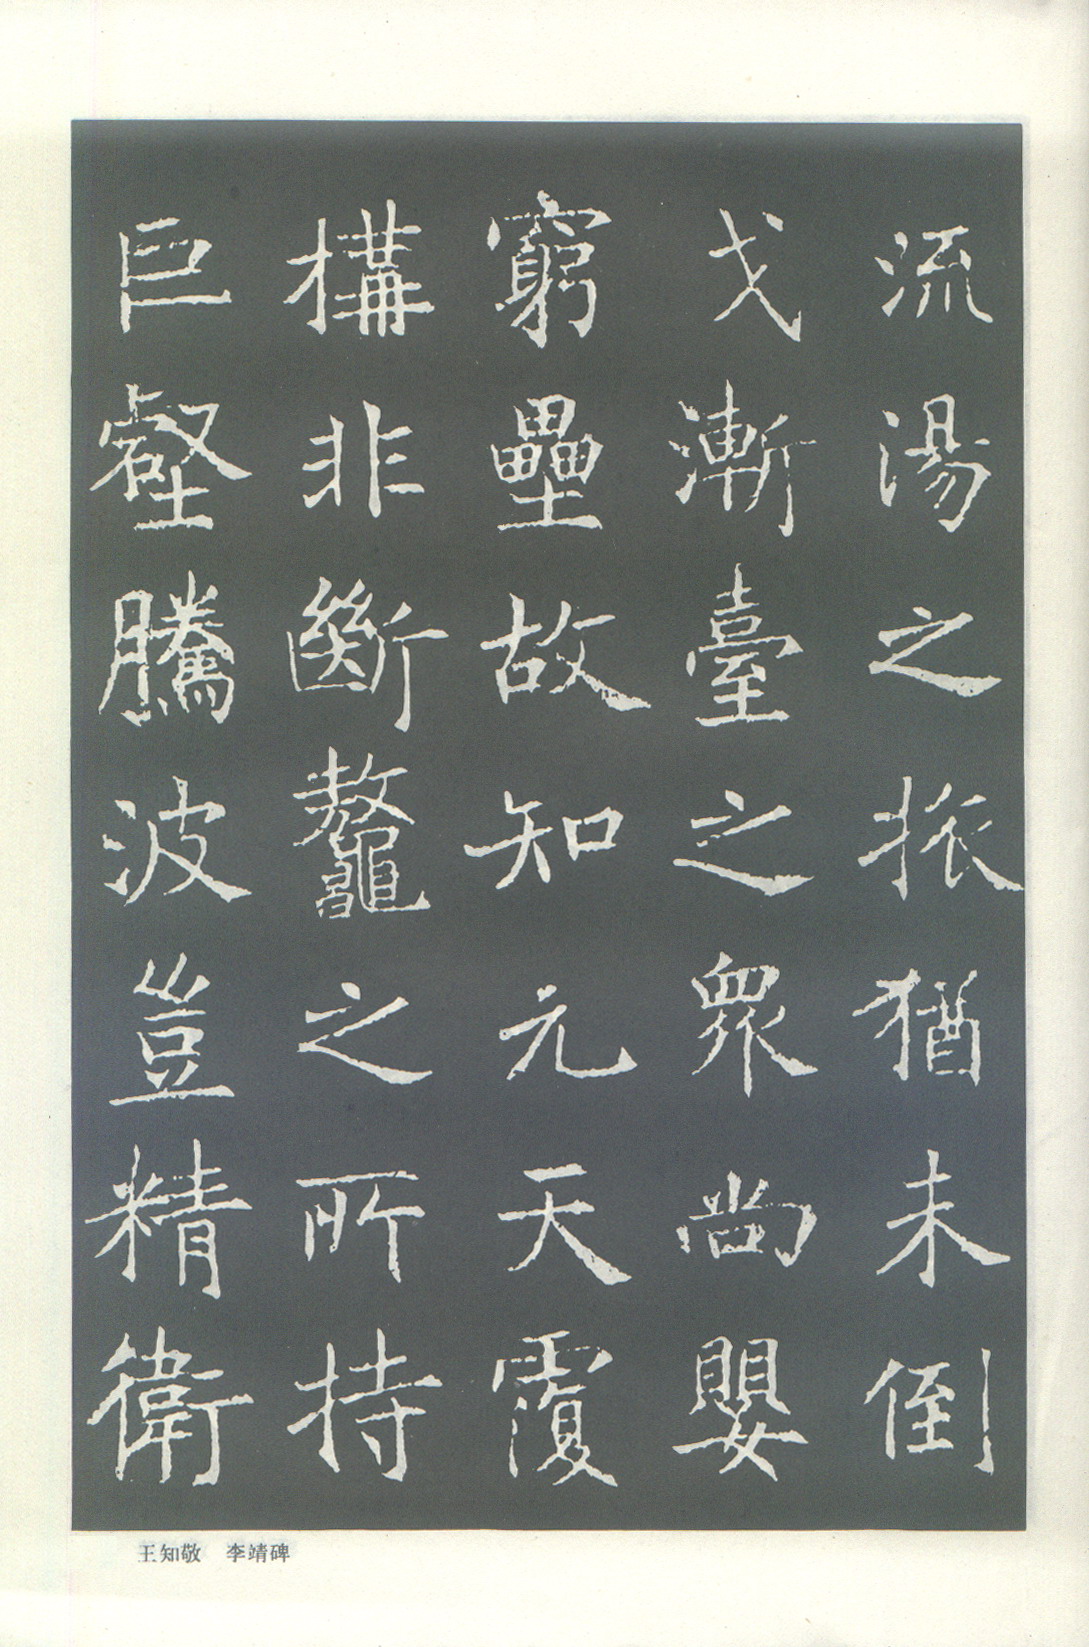 流湯之振猶未倒
戈漸臺之眾尚嬰
窮壘故知元天覆
構非斷鼇之所持
巨壑騰波豈精衛
王知敬 李靖碑